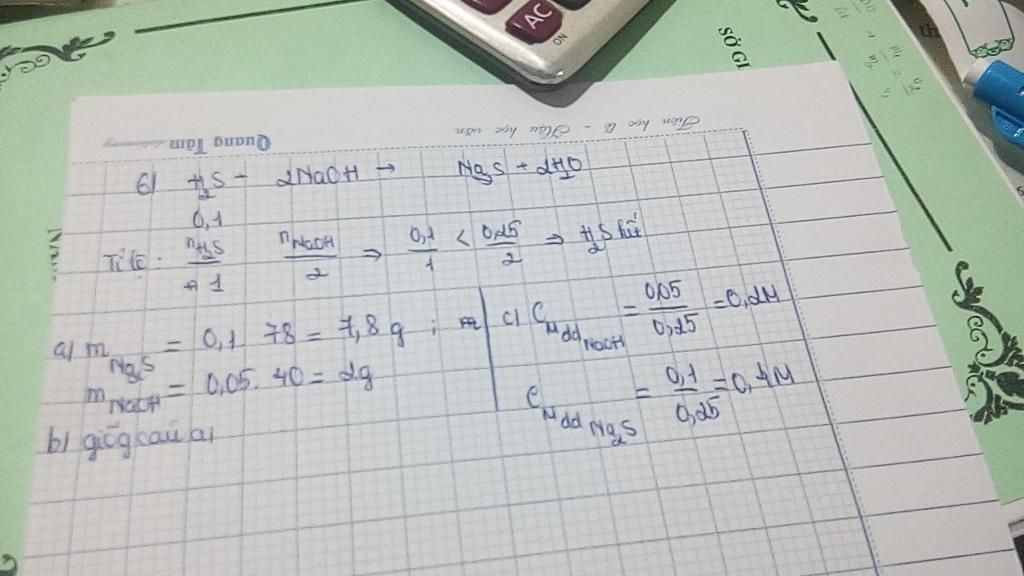 AC
ON
SỞ GI
Tiên học lễ - Hậu học văn
Quang Tâm
6) H2S + 2NaOH → Na2S + 2H2O
0,1
Tỉ lệ: nH2S/1 nNaOH/2 ⇒ 0,1/1 < 0,25/2 ⇒ H2S hết
a) mNa2S = 0,1. 78 = 7,8 g ;
mNaOH = 0,05. 40 = 2g
b) giống câu a)
c) CM dd NaOH = 0,05/0,25 = 0,2M
CM dd Na2S = 0,1/0,25 = 0,4M